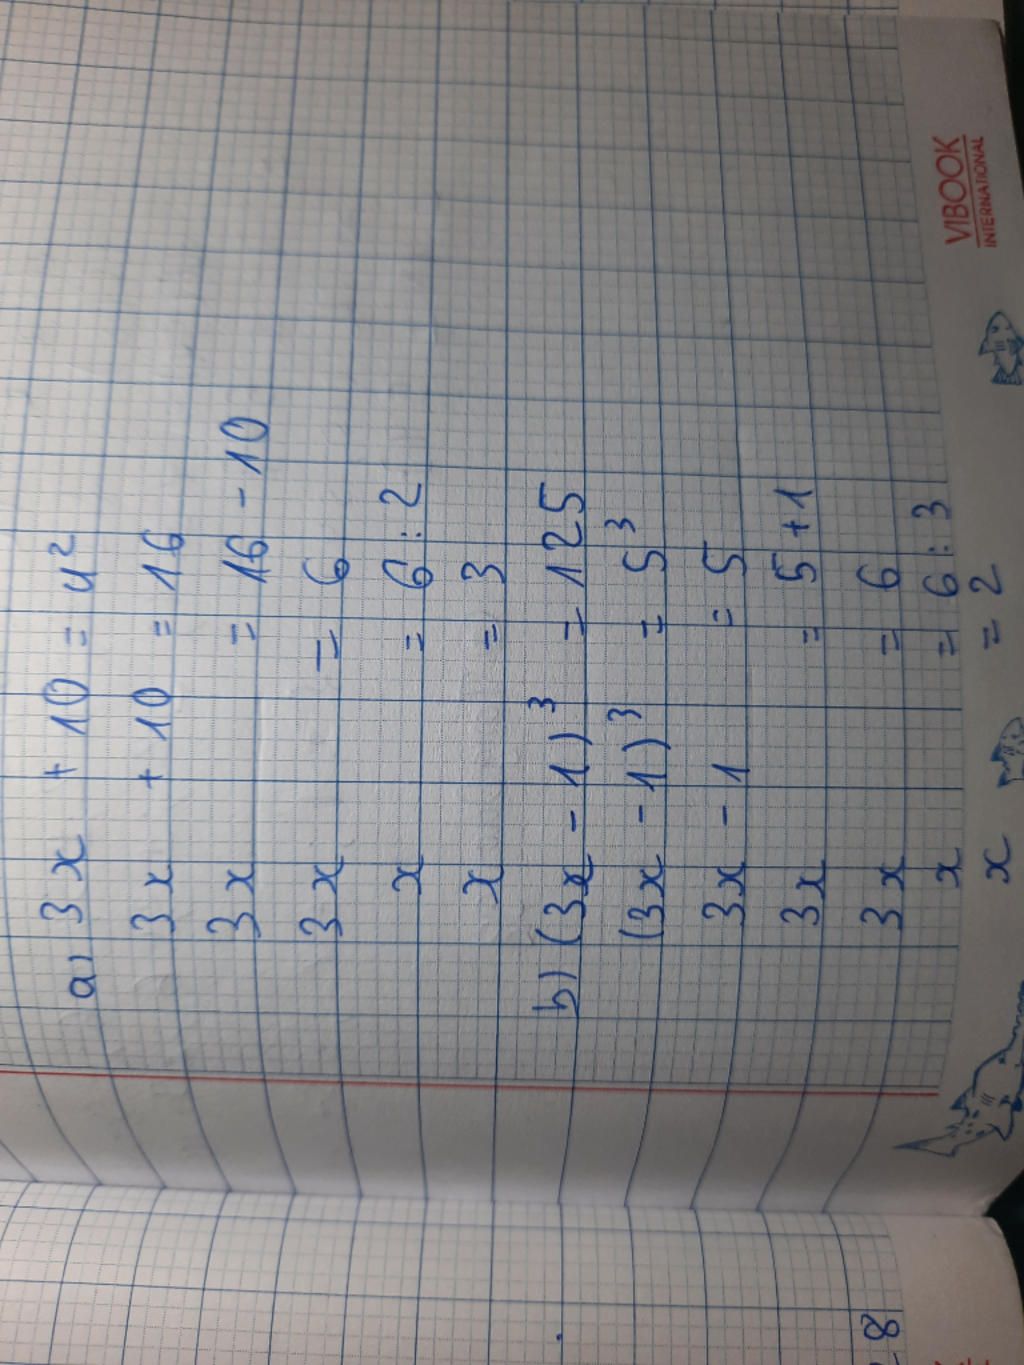 a) 3x + 10 = 4²
3x + 10 = 16
3x = 16 - 10
3x = 6
x = 6 : 2
x = 3
b) (3x - 1)³ = 125
(3x - 1)³ = 5³
3x - 1 = 5
3x = 5 + 1
3x = 6
x = 6 : 3
x = 2
VIBOOK
INTERNATIONAL
8